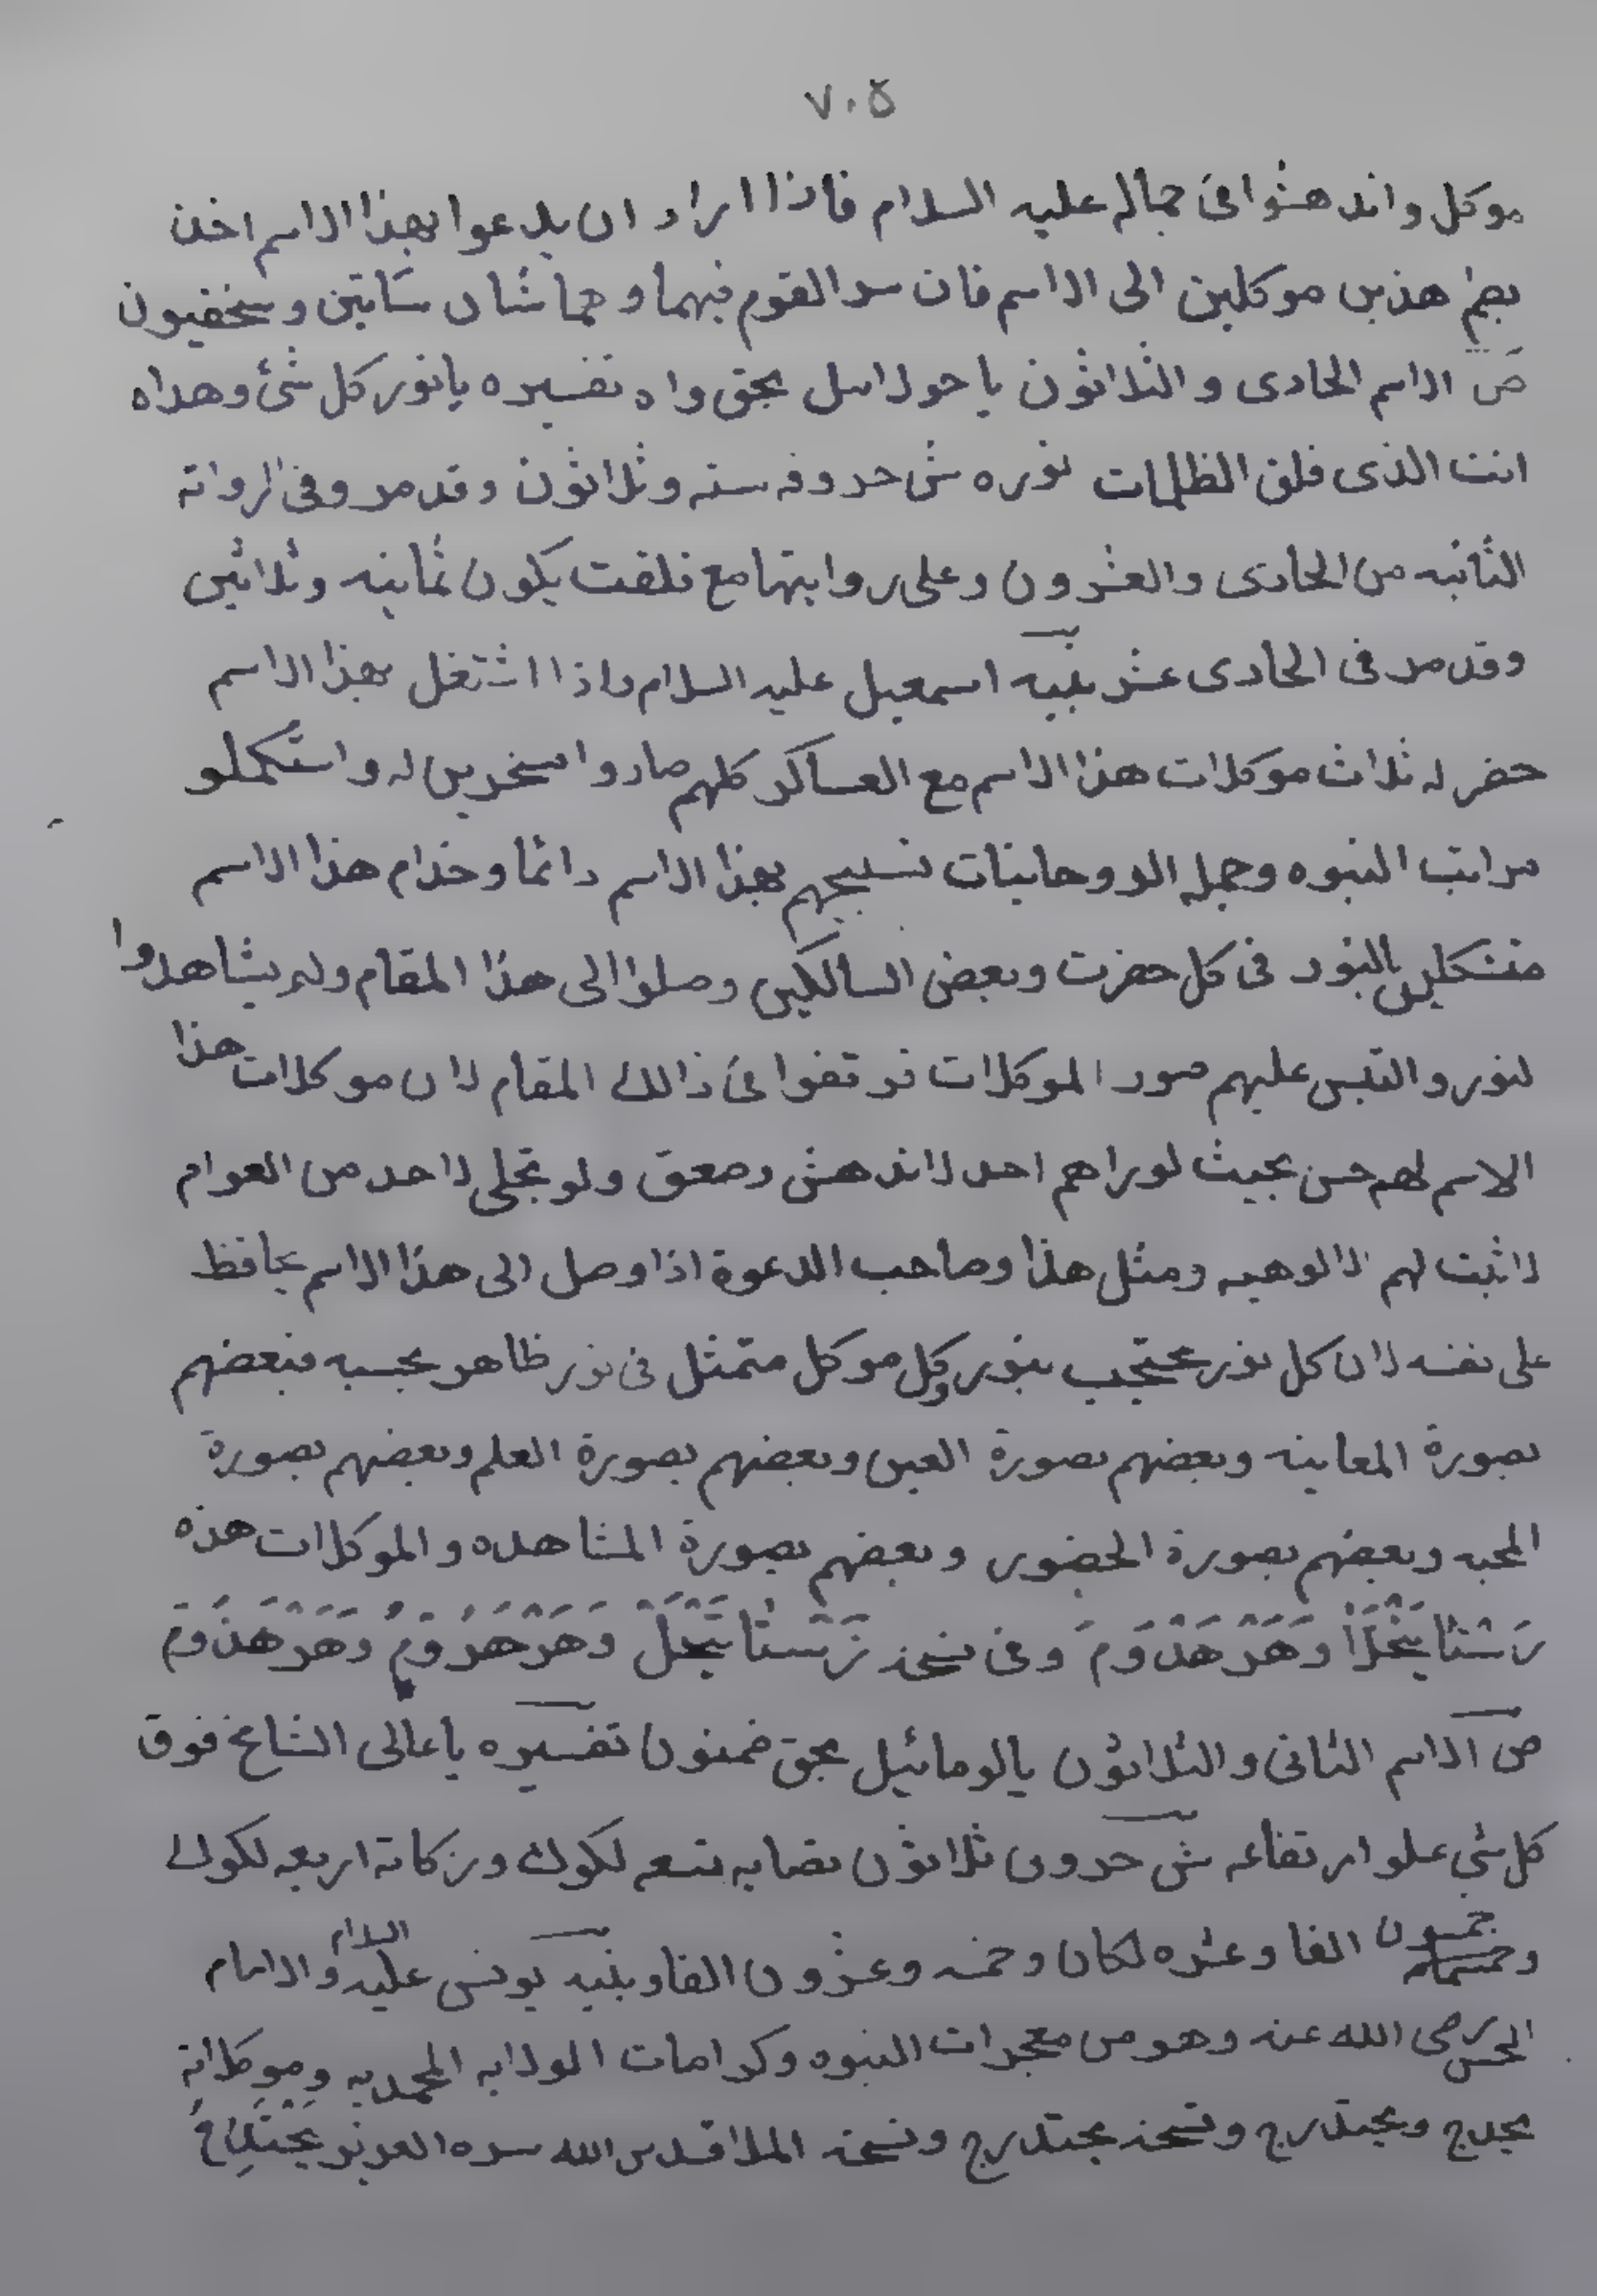 ٧٠٥
موكل واندهشوا فى جماله عليه السلام فاذا اراد ان يدعوا بهذا الاسم اخذ
هذين موكلين الى الاسم فان سر القوم فيهما وهما شابان و
ص الاسم الحادى والثلاثون يا حولاىىل بحق واه تفسيره يا نور كل شئ وهداه
انت الذى فلق الظلمات نوره ش حروفه سته وثلاثون وقد مر وفى الرواته
الثانيه من الحادى والعشرون وعلى روايتها مع فلقت يكون ثمانيه وثلاثين
وقد مر فى الحادى عشر نبيه اسمعيل عليه السلام واذا اشتغل بهذا الاسم
حضر له ثلاث موكلات هذا الاسم مع العساكر كلهم صاروا مسخرين له واستكملو
مراتب النبوه وجمله الروحانيات تسبيحهم بهذا الاسم دائما وخدام هذا الاسم
متشكلين بالنور فى كل حضرت وبعض السالكين وصلوا الى هذا المقام ولم يشاهدوا
لنور والتبس عليهم صور الموكلات توقفوا فى ذالك المقام لان موكلات هذا
الاسم لهم حسن بحيث لو يراهم احد لاندهش وصعق ولو تجلى لاحد من العوام
لاثبت لهم الالوهيه ومثل هذا وصاحب الدعوة اذا وصل الى هذا الاسم يحافظ
على نفسه لان كل نور محتجب بنور وكل موكل متمثل فى نور ظاهر بحسبه فبعضهم
بصورة المعاينه وبعضهم بصورة العين وبعضهم بصورة العلم وبعضهم بصورة
المحبه وبعضهم بصورة الحضور وبعضهم بصورة المشاهده والموكلات هذه
رَشتَا يَخْلَاْ وَهَرْهَدْوَمَ وفى نسخه زَرْستَا يَتَخَلْ وَهَرْهَرُوَمٌ وَهَرْهَدَوَمَ
ص الاسم الثانى والثلاثون يا لومائيل بحق ضمنون تفسيره يا عالى الشامخ فوق
كل شئ علو ارتفاعه ش حروف ثلاثون نصابه تسعه لكوك وزكاته اربعه لكوك
وخمسون الفا وعشره لكان وخمسه وعشرون الفا ونبيه يونس عليه السلام والامام
الحسن رضى الله عنه وهو من معجزات النبوه وكرامات الولايه المحمديه وموكلاته
يجدج ويجتدرج ونسخه يجتدرج ونسخه الملا قدس الله سره العزيز